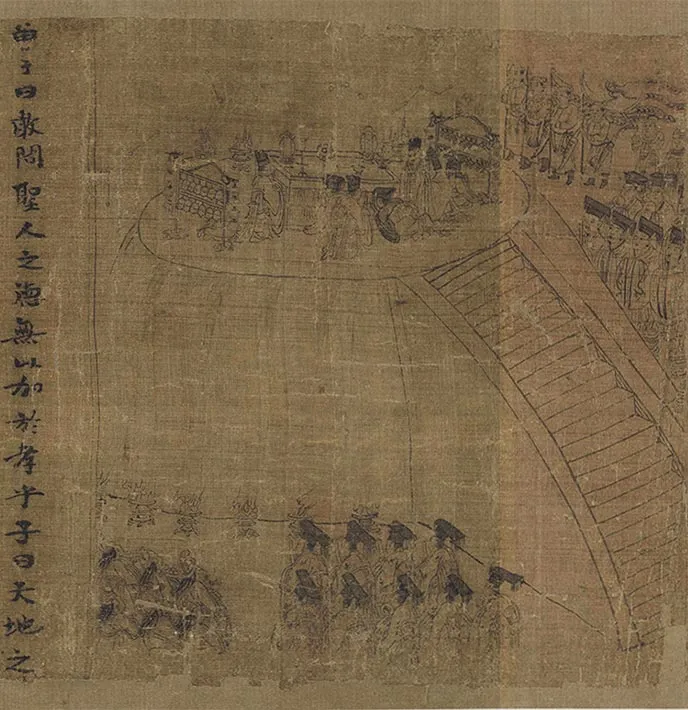 曾子曰敢問聖人之德無以加於孝乎子曰天地之